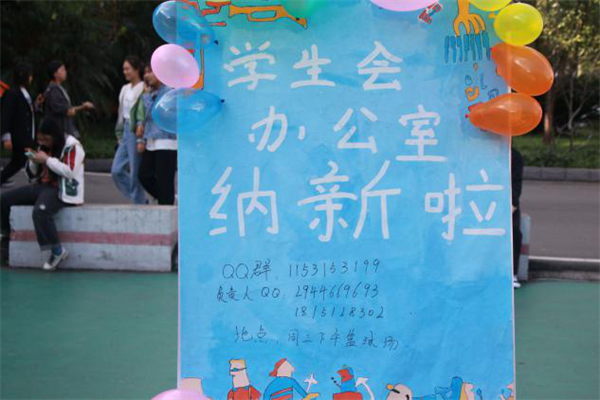 学生会
办公室
纳新啦
QQ群：1153153199
负责人QQ：2944669693
1815128302
地点：周三下午篮球场